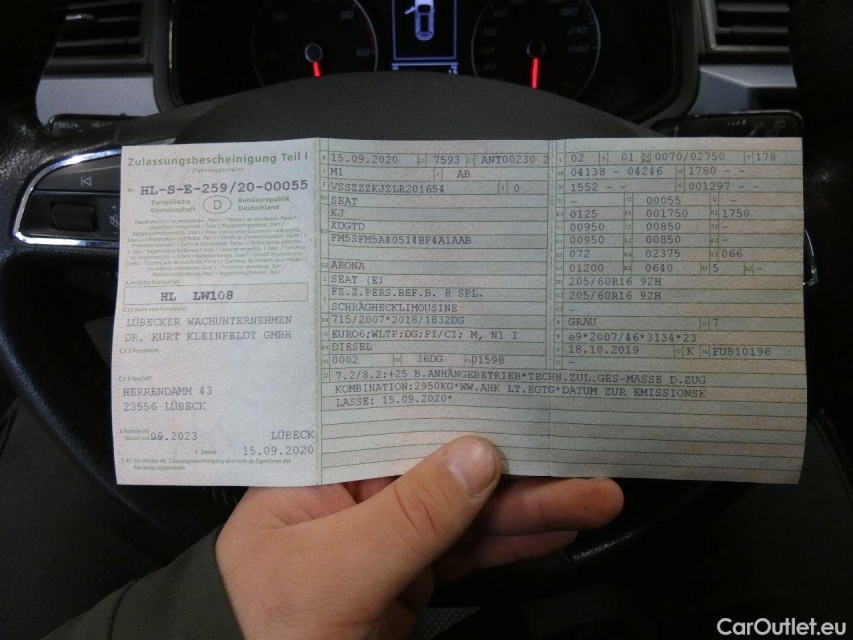 Zulassungsbescheinigung Teil I
(Fahrzeugschein)
HL-S-E-259/20-00055
Europäische Gemeinschaft D Bundesrepublik Deutschland
HL LW108
LÜBECKER WACHUNTERNEHMEN
DR. KURT KLEINFELDT GMBH
HERRENDAMM 43
23556 LÜBECK
09.2023 LÜBECK
15.09.2020
15.09.2020 7593 ANT00230 2
M1 AB
VSSZZZKJZLR201654 0
SEAT
KJ
XDGTD
FM5SFM5A40514BF4A1AAB
ARONA
SEAT (E)
FZ.Z.PERS.BEF.B. 8 SPL.
SCHRÄGHECKLIMOUSINE
715/2007*2018/1832DG
EURO6;WLTP;DG;PI/CI; M, N1 I
DIESEL
0002 36DG 01598
02 01 0070/02750 178
04138 - 04246 1780 - -
1552 - - 001297 - -
- 00055 -
0125 001750 1750
00950 00850 -
00950 00850 -
072 02375 066
01200 0640 5 -
205/60R16 92H
205/60R16 92H
-
-
GRAU 7
e9*2007/46*3134*23
18.10.2019 K FU810196
7.2/8.2:+25 B.ANHÄNGEBETRIEB*TECHN.ZUL.GES-MASSE D.ZUG
KOMBINATION:2950KG*WW.AHK LT.EGTG*DATUM ZUR EMISSIONSK
LASSE: 15.09.2020*
CarOutlet.eu